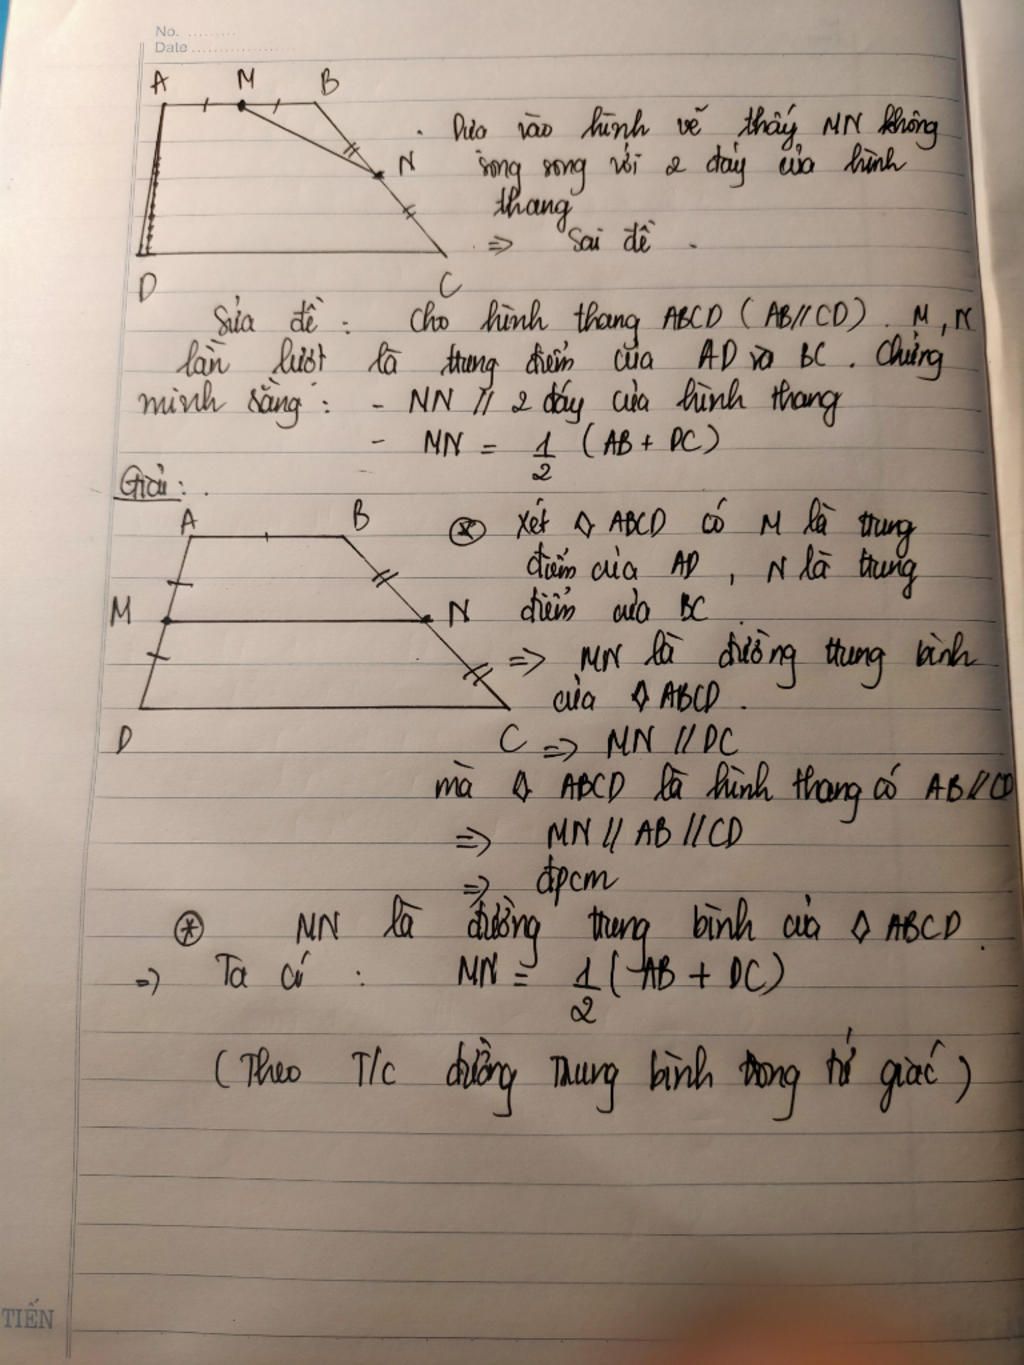 No. .........
Date ...................
A M B
N
D C
. Dựa vào hình vẽ thấy MN không
song song với 2 đáy của hình
thang
=> Sai đề .
Sửa đề : Cho hình thang ABCD (AB//CD). M, N
lần lượt là trung điểm của AD và BC. Chứng
minh rằng : - MN // 2 đáy của hình thang
- MN = 1/2 (AB + DC)
Giải :
A B
M N
D C
* Xét ◇ ABCD có M là trung
điểm của AD, N là trung
điểm của BC
=> MN là đường trung bình
của ◇ ABCD .
=> MN // DC
mà ◇ ABCD là hình thang có AB//CD
=> MN // AB // CD
=> đpcm
* MN là đường trung bình của ◇ ABCD.
=> Ta có : MN = 1/2 (AB + DC)
(Theo T/c đường trung bình trong tứ giác)
TIẾN